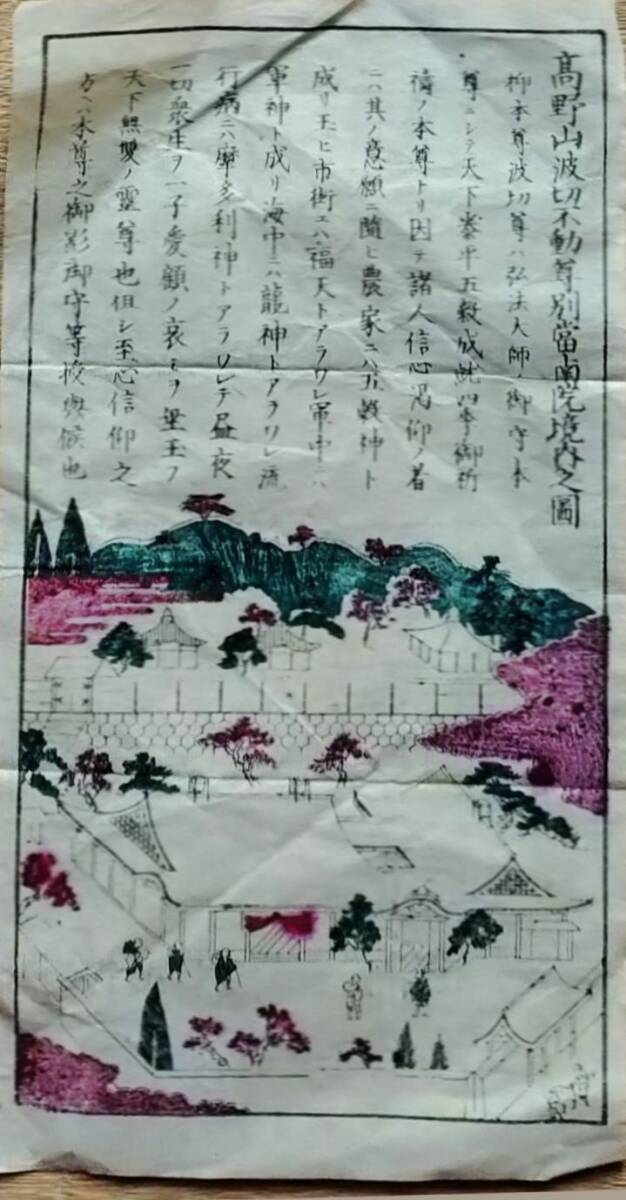 高野山波切不動尊別當南院境内之圖
抑本尊波切尊ハ弘法大師ノ御守本
尊ニシテ天下泰平五穀成就四季御祈
禱ノ本尊トリ因テ諸人信心渇仰ノ者
ハ其ノ意願ニ隨ヒ農家ニハ五穀神ト
成リ玉ヒ市街ニハ福天トアラワレ軍中ニハ
軍神ト成リ海中ニハ龍神トアラワレ流
行病ニハ摩多利神トアラワレテ昼夜
一切衆生ヲ一子愛顧ノ哀ミヲ垂玉フ
天下無雙ノ靈尊也但シ至心信仰之
方ヘハ本尊之御影御守等授與候也